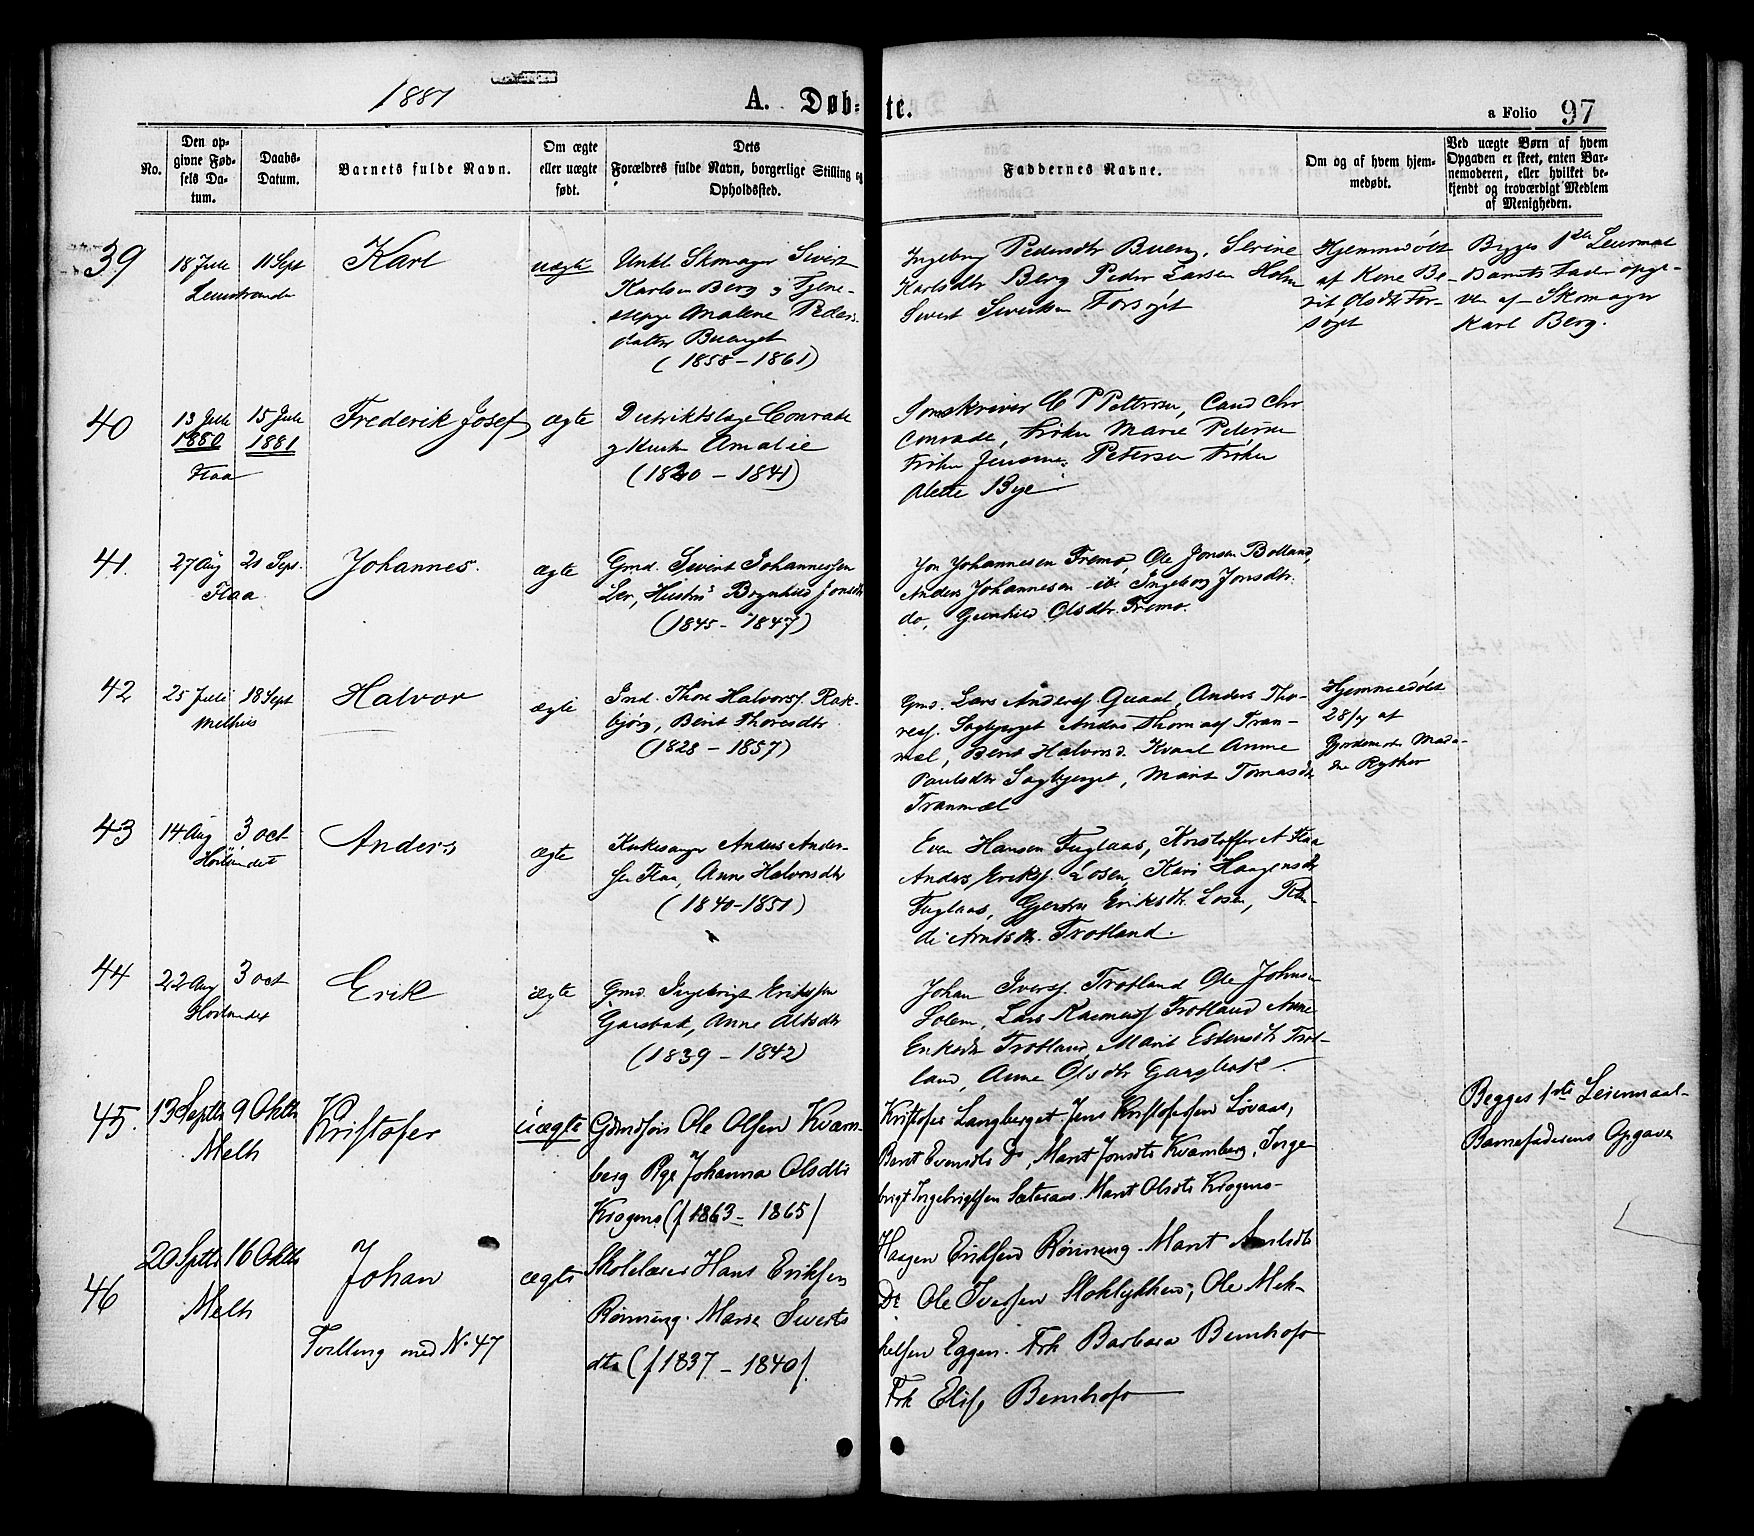 1881
A. Døb-
te.
a Folio 97
No.
Den op-
givne Fød-
sels Da-
tum.
Daabs-
Datum.
Barnets fulde Navn.
Om ægte
eller uægte
født.
Dets
Forældres fulde Navn, borgerlige Stilling og
Opholdssted.
Faddernes Navne.
Om og af hvem hjem-
medøbt.
Ved uægte Børn af hvem
Opgaven er skeet, enten Bar-
nemoderen, eller hvilket be-
kjendt og troværdigt Medlem
af Menigheden.
39
18 Juli
11 Sept
Karl
uægte
Unkl Skomager Sivert
Karlsen Berg og Tjene-
stepge Malene Peders-
datter
(1858 - 1861)
Ingebrig Pedersdtr Serine
Karlsdtr Berg Peder Larsen Holm
Sivert Sivertsen Forsøget
Hjemmedøbt
af Kone Be-
rit Olsdtr For-
søget
Begges 1ste Leiermaal
Barnets Fader opgi-
ven af Skomager
Karl Berg.
40
13 Juli
1880
Flaa
15 Juli
1881
Frederik Josef
ægte
Distriktslæge Conrade
og Hustru Amalie
(1820 - 1841)
C P Petersen, Cand Chr
Conrade, Frøken Marie Petersen
Frøken Petersen Frøken
Alette Bye
41.
27 Aug
21 Sept.
Flaa
Johannes.
ægte
Gmd. Sivert Johannessen
Ler, Hustru Brynhild Jonsdtr
(1845 - 1847)
Jon Johannesen Fremo, Ole Jonsen Bolland,
Anders Johannesen Ingeborg Jonsdtr.
do, Gunhild Olsdtr. Fremo.
42
25 Juli
18 Sept
Melhus
Halvor
ægte
Ind. Thore Halvorsf. Rak-
bjørg, Berit Thoresdtr
(1828 - 1857)
Gmd. Lars Andersf Qvaal, Anders Tho-
resf. Sagbjerget Anders Thomasf Tran-
mæl, Berit Halvorsd. Kvaal Anne
Paulsdtr Sagbjerget, Marit Tomasdtr
Tranmæl
Hjemmedøbt
28/7 af
Gjordemoder Mada-
me Ryther
43
14 Aug
3 oct
Hølandet
Anders
ægte
Kirkesanger Anders Ander-
sen Flaa, Anne Halvorsdtr
(1840-1851)
Even Hansen Fuglaas, Kristoffer A Flaa
Anders Eriksf. Losen, Kari Haagensdtr
Fuglaas, Gjertru Eriksdtr. Losen, Ran-
di Arntsdtr. Trotland.
44
22 Aug
3 oct
Hølandet
Erik
ægte
Gmd. Ingebrigt Eriksen
Gaasbak, Anne Olsdtr
(1839 - 1842)
Johan Iversf Trotland Ole Johnsen
Solem, Lars Rasmusf Trotland Anne
Eriksdtr Trotland, Marit Estensdtr Trot-
land, Anne Olsdtr Gaasbak.
45.
13 Septbr
9 Oktbr
Melh
Kristofer
uægte
Gdmdsøn Ole Olsen Kvam-
berg Pige Johanna Olsdtr
Krogens (f 1863 - 1865)
Kristofer Langberget. Jens Kristofersen Løvaas,
Berit Evensdtr Do, Marit Jonsdtr Kvamberg, Inge-
brigt Ingebrigtsen Sæteraas. Marit Olsdtr Krogens-
Begges 1ste Leiermaal-
Barnefaderens Opgave
46
20 Septbr
16 Oktbr
Melh
Johan
Tvilling med No. 47
ægte
Skolelærer Hans Eriksen
Rønning. Marie Siverts
dtr (f 1837 - 1840).
Haagen Eriksen Rønning. Marit Arntsdtr
Do Ole Iversen Ole Mik-
kelsen Eggen. Frk Barbara Bernhoft
Frk Elise Bernhoft